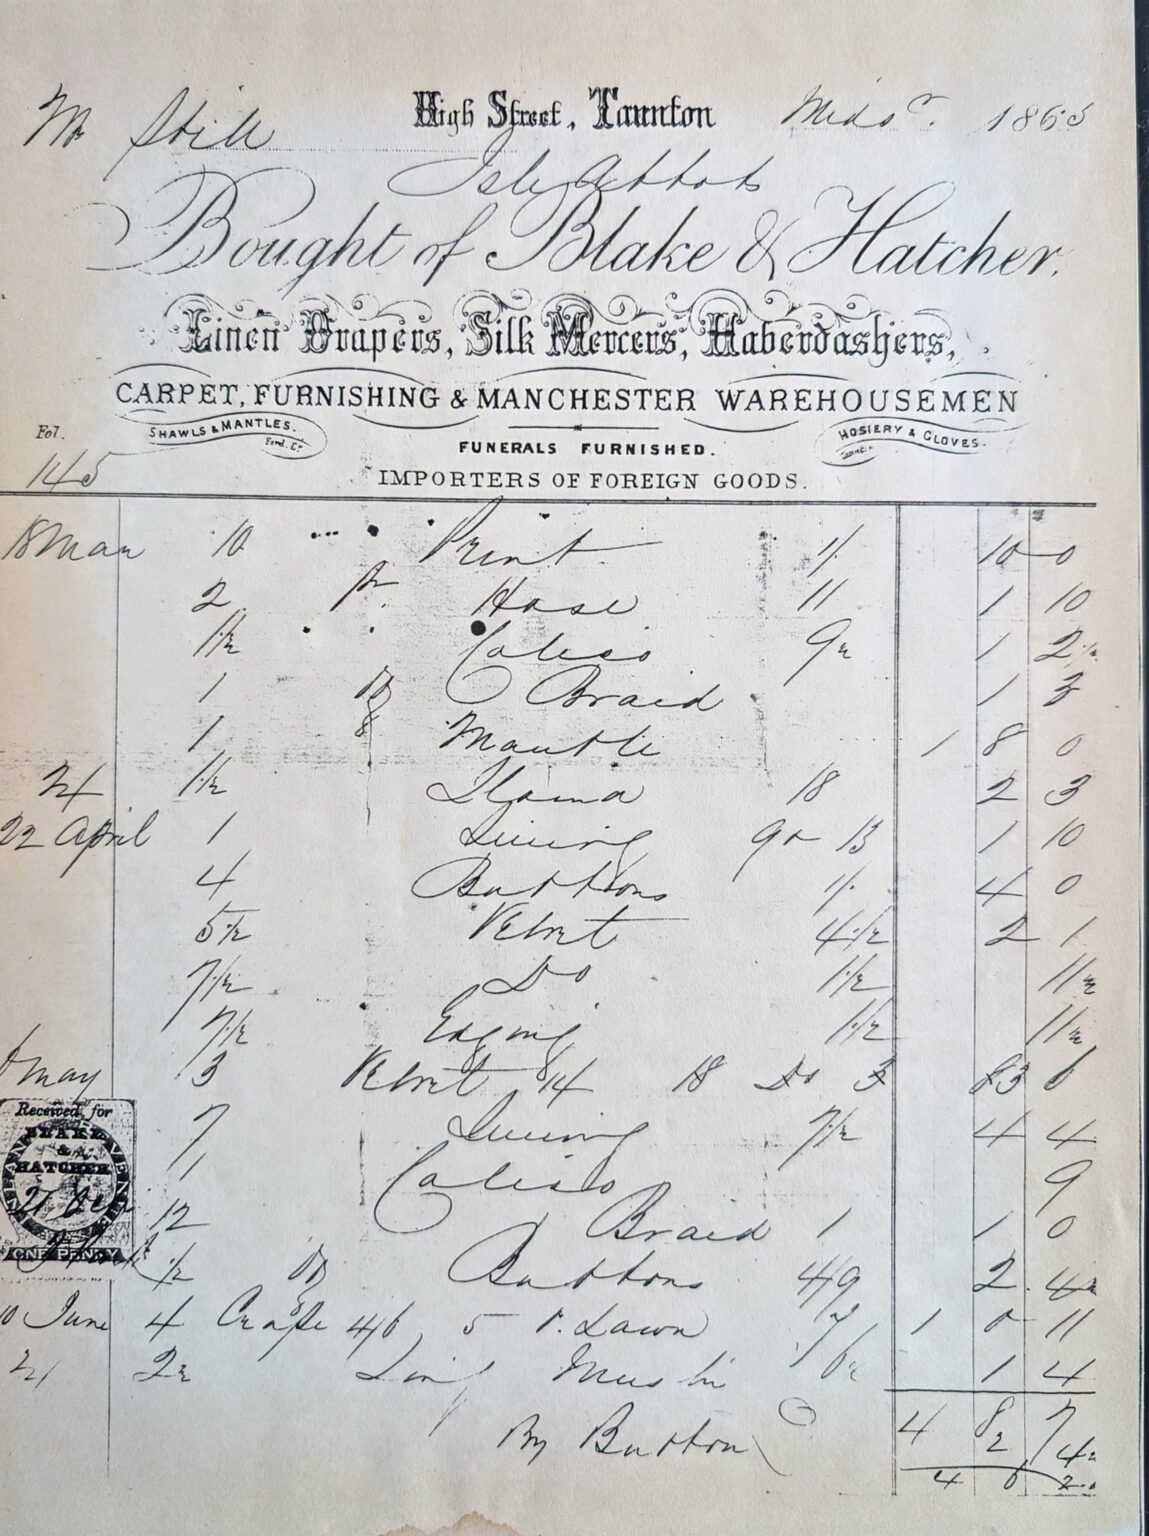 High Street, Taunton Mids r. 1865
Mr Still
Isle Abbots
Bought of Blake & Hatcher.
Linen Drapers, Silk Mercers, Haberdashers,
CARPET, FURNISHING & MANCHESTER WAREHOUSEMEN
SHAWLS & MANTLES.
FUNERALS FURNISHED.
HOSIERY & GLOVES.
Fol.
145
IMPORTERS OF FOREIGN GOODS.
18 Mar 10 Print 1/ 10 0
2 pr Hose 11 1 10
1 1/2 Calico 9 1/2 1 2 1/2
1 Braid 1 3
1 Mantle 1 8 0
24 1 1/2 Llama 18 2 3
22 April 1 Lining 9 or 13 1 10
4 Buttons 1/ 4 0
5 1/2 Velvet 4 1/2 2 1
7 1/2 Do 1 1/2 11 1/2
7 1/2 Edging 1 1/2 11 1/2
May 3 Velvet 14 18 Do 3 3 6
7 Lining 7 1/2 4 4
1 Calico 9
12 Braid 1 1 0
1/2 Buttons 4/9 2 4 1/2
10 June 4 Crape 4/6, 5 Lawn 7/ 1 0 11
21 2 1/2 Ling Muslin 6 1/2 1 4
4 8 7
By Button 2 4 1/2
4 6 2 1/2
Received for
BLAKE
&
HATCHER
27 Dec
ONE PENNY